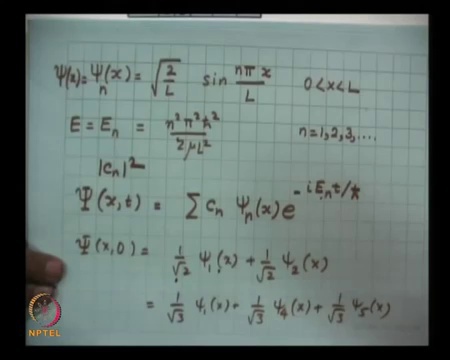 Ψ(x) = Ψn(x) = √(2/L) sin nπx/L 0<x<L
E = En = n²π²ħ²/2μL² n=1,2,3,....
|cn|²
Ψ(x,t) = Σ cn Ψn(x) e^-iEnt/ħ
Ψ(x,0) = 1/√2 Ψ1(x) + 1/√2 Ψ2(x)
= 1/√3 Ψ1(x) + 1/√3 Ψ4(x) + 1/√3 Ψ5(x)
NPTEL